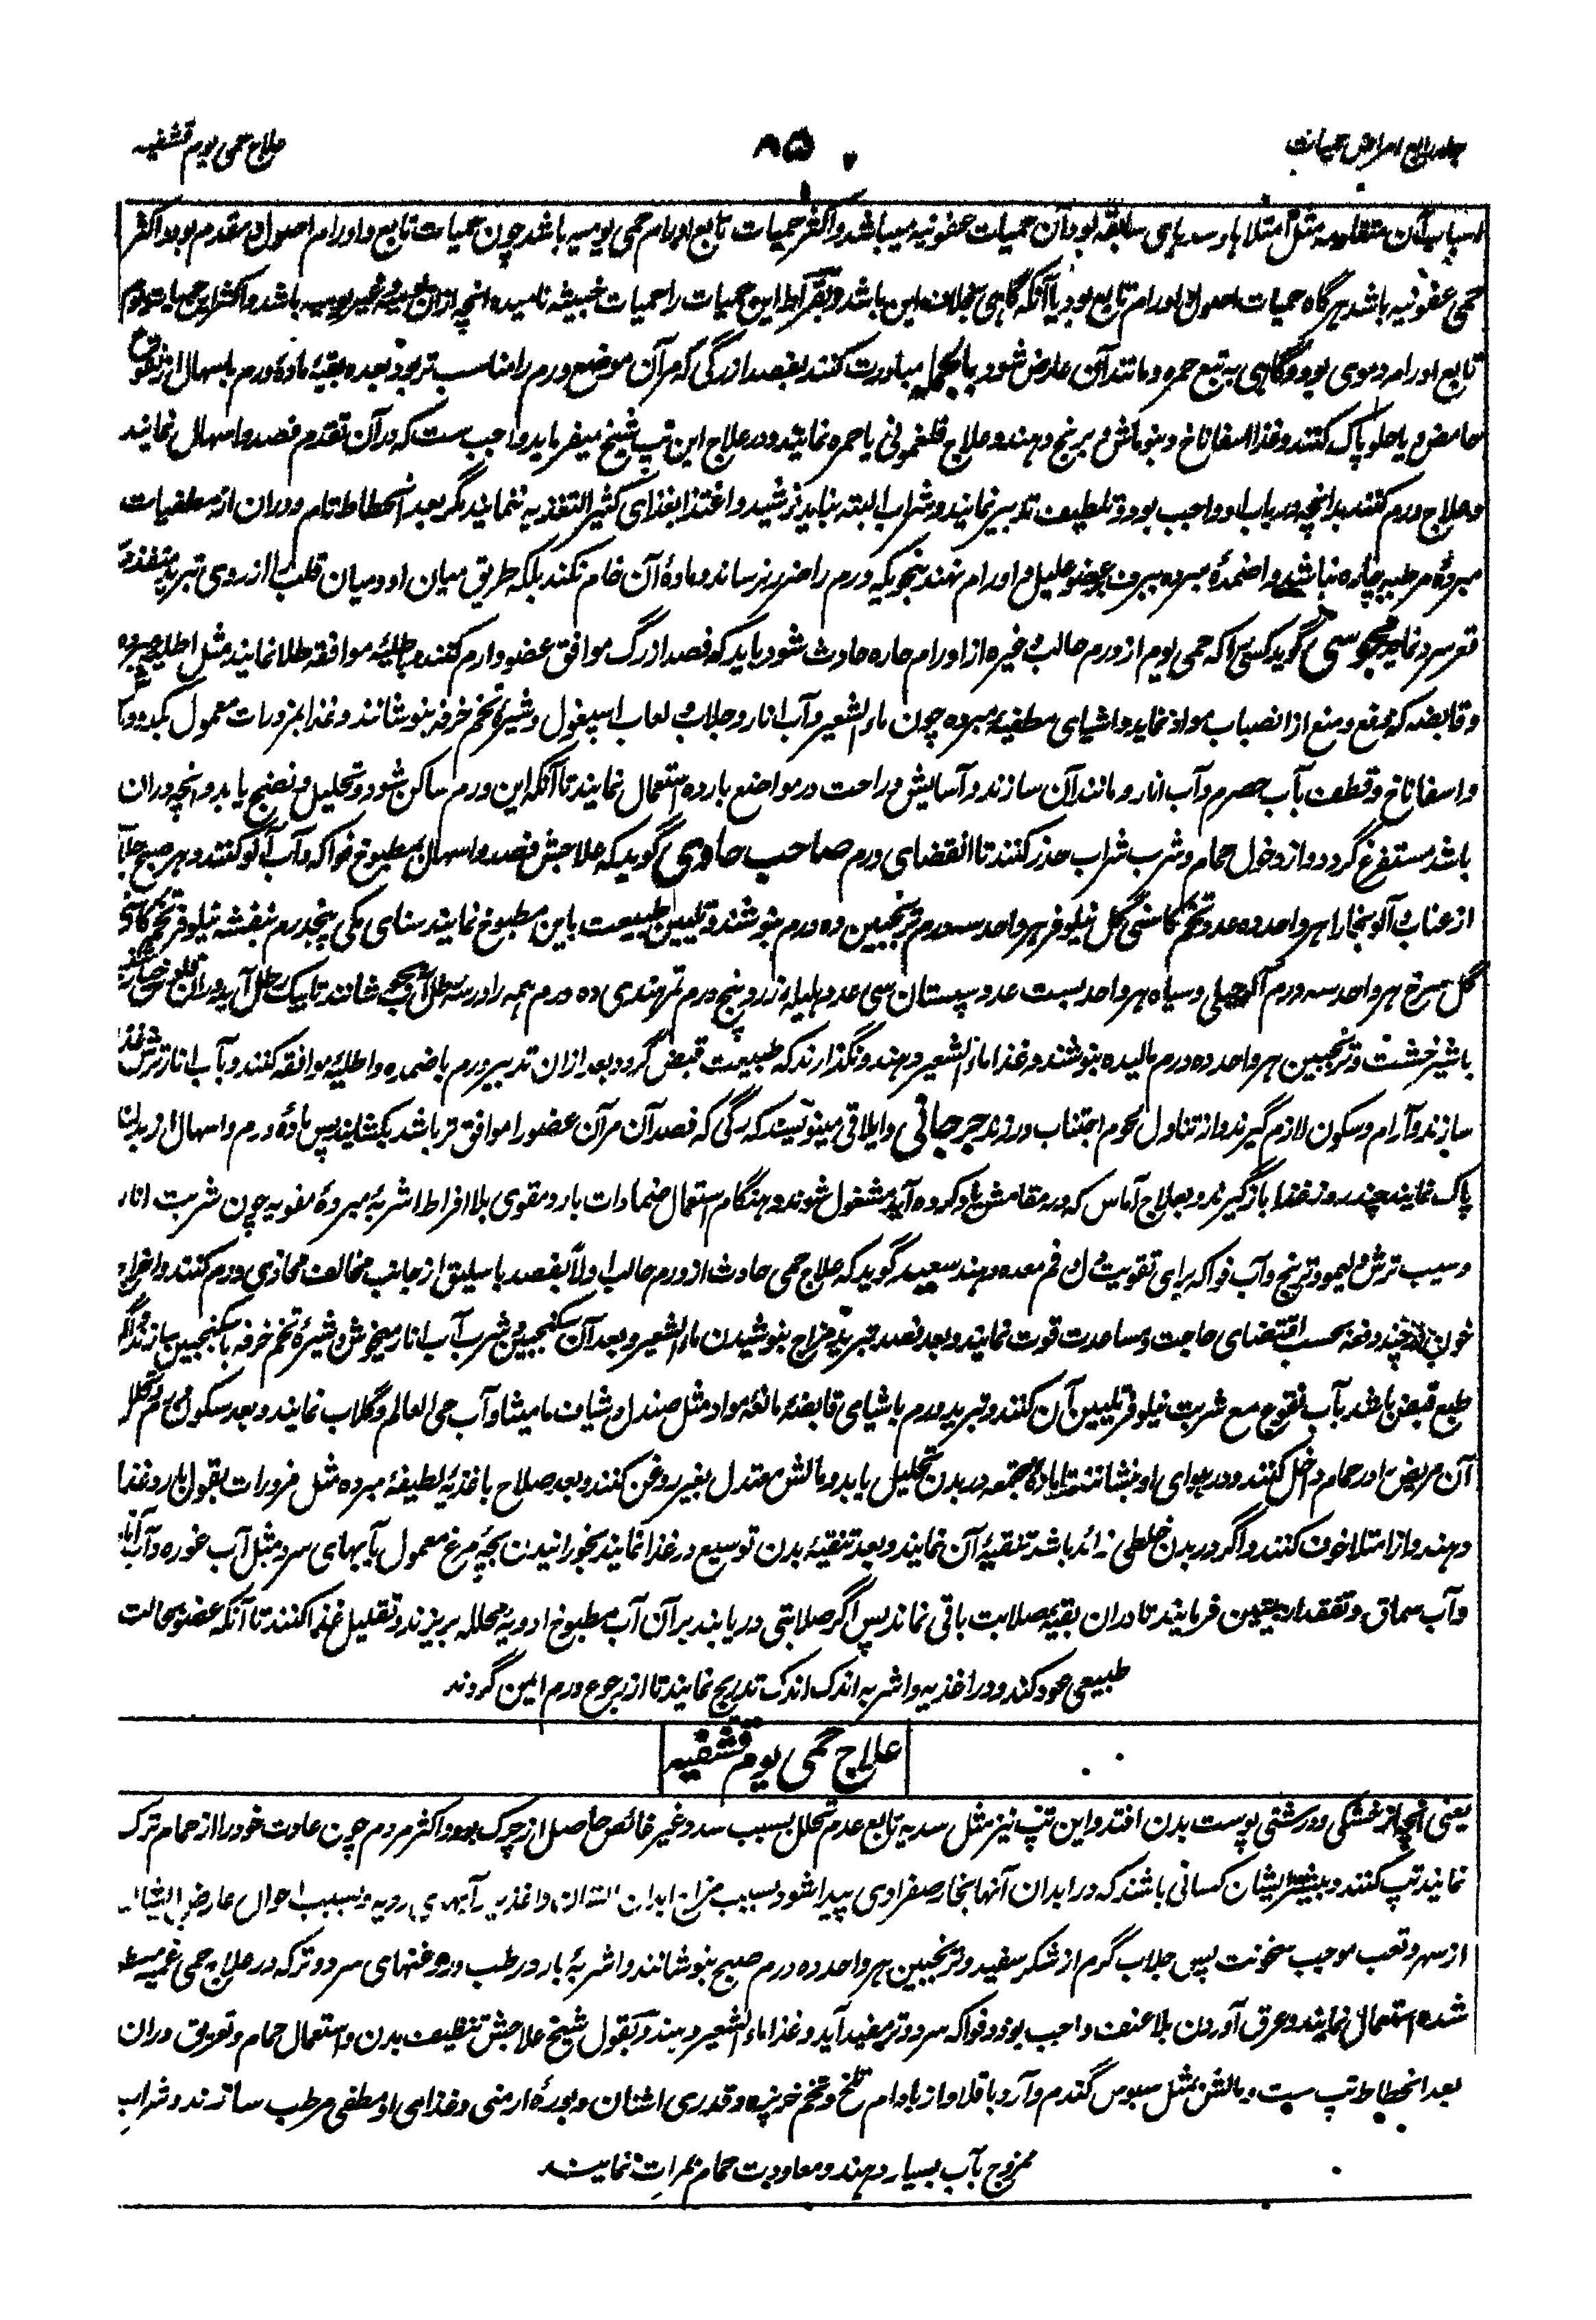 جلد رابع امراض حمیات
۸۵
علاج حمی یوم قشفیه
اسباب آن متقادمه مثل امتلاها و سدهای سابقه بود آن حمیات عفونیه میباشد و اکثر حمیات تابع اورام حمی یومیه باشد چون حمیات تابع و اورام اصول و مقدم بود و اکثر
حمی عفونیه باشد هرگاه حمیات اصول و اورام تابع بود یا آنکه گاهی بخلاف این باشد و بقراط این حمیات را حمیات خبیثه نامیده انچه ازان غیر یومیه باشد و اکثر این حمیات
تابع اورام دموی بود و گاهی به تبع حمره و مانند آن عارض شود بالجمله مبادرت کنند بفصد از رگی که مر آن موضع ورم را مناسب تر بود بعده بقیهٔ مادهٔ ورم باسهال از نقوع
حامض و یا حلو پاک کنند و غذا اسفاناخ و بنو ماش و برنج دهند و علاج فلغمونی یا حمره نمایند و در علاج این تپ شیخ میفرماید واجب ست که در آن تقدم فصد و اسهال نمایند
و علاج ورم کنند بدانچه در باب او واجب بود و تلطیف تدبیر نمایند و شراب البته نباید نوشید و اغتذا بغذای کثیر التغذیه ننمایند مگر بعد انحطاط تام و دران از مطفیات
مبرده مرطبه چاره نباشد و اضمدهٔ مبرده ببرف بر عضو علیل و اورام نهند بنحویکه ورم را ضرر نرساند و مادهٔ آن خام نکند بلکه طریق میان او و میان قلب را از روی تبرید
قعر سرد نماید مجوسی گوید کسی را که حمی یوم از ورم حالب و غیره از اورام حاره حادث شود باید که فصد از رگ موافق عضو وارم کنند و باطلیهٔ موافقه طلا نمایند مثل اطلیه مبرده
و قابضه که دفع و منع از انصباب مواد نماید و اشیای مطفیهٔ مبرده چون ماء الشعیر و آب انار و جلاب و لعاب اسپغول و شیرهٔ تخم خرفه بنوشانند و غذا بمزورات معمول بکدو و
و اسفاناخ و قطف بآب حصرم و آب انار و مانند آن سازند و آسایش و راحت در مواضع بارده استعمال نمایند تا آنکه این ورم ساکن شود و تحلیل و نضج یابد و انچه دران
باشد مستفرغ گردد و از دخول حمام و شرب شراب حذر کنند تا انقضای ورم صاحب حاوی گوید که علاجش فصد و اسهال بمطبوخ فواکه و آب آلو کنند و هر صبح جلاب
از عناب و آلو بخارا هر واحد ده عدد تخم کاسنی گل نیلوفر هر واحد سه درم ترنجبین ده درم بنوشند و تلیین طبیعت باین مطبوخ نمایند سنای مکی پنجدرم بنفشه نیلوفر تخم کاسنی
گل سرخ هر واحد سه درم آلو جبلی و سیاه هر واحد بست عدد سپستان سی عدد هلیله زرد پنج درم تمرهندی ده درم همه را در سه رطل آب جوشانند تا بیک رطل آید و دران
باشیرخشت و ترنجبین هر واحد ده درم مالیده بنوشند و غذا ماء الشعیر دهند و نگذارند که طبیعت قبض گردد بعد ازان تدبیر ورم باضمده و اطلیهٔ موافقه کنند و بآب انار ترش غذا
سازند و آرام و سکون لازم گیرند و از تناول لحوم اجتناب ورزند جرجانی و ایلاقی مینویسند که رگی که فصد آن مر آن عضو را موافق تر باشد بکشایند پس مادهٔ ورم و اسهال از بدن
پاک نمایند چند روز غذا باز گیرند و بعلاج آماس که در مقامش یاد کرده آید مشغول شوند و هنگام استعمال ضمادات بارد و مقوی بلا افراط اشربهٔ مبردهٔ مقویه چون شربت انار
و سیب ترش و لیمو و ترنج و آب فواکه برای تقویت دل و فم معده دهند سعید گوید که علاج حمی حادث از ورم حالب اولاً بفصد باسلیق از جانب مخالف محاذی ورم کنند و اخراج
خون چند دفعه بحسب اقتضای حاجت و مساعدت قوت نمایند و بعد فصد تبرید مزاج بنوشیدن ماء الشعیر و بعد آن سکنجبین و شرب آب انار میخوش و شیرهٔ تخم خرفه با سکنجبین سازند و اگر
طبع قبض باشد بآب نقوع مع شربت نیلوفر تلیین آن کنند و تبرید ورم باشیای قابضهٔ مانعه مواد مثل صندل و شیاف مامیثا و آب حی العالم و گلاب نمایند و بعد سکون ورم و تحلل
آن مریض را در حمام داخل کنند و در هوای او بنشانند تا مادهٔ مجتمعه در بدن تحلیل یابد و مالش معتدل بغیر روغن کنند و بعد صلاح باغذیهٔ لطیفهٔ مبرده مثل مزورات بقول بارد غذا
دهند و از امتلا خوف کنند و اگر در بدن خلطی زائد باشد تنقیهٔ آن نمایند و بعد تنقیهٔ بدن توسیع در غذا نمایند بخورانیدن بچهٔ مرغ معمول بآبهای سرد مثل آب غوره و آب انار
و آب سماق و تفقد اربیتین فرمایند تا دران بقیهٔ صلابت باقی نماند پس اگر صلابتی دریابند بر آن آب مطبوخ ادویهٔ محلله بریزند و تقلیل غذا کنند تا آنکه عضو بحالت
طبیعی عود کند و در اغذیه و اشربه اندک اندک تدریج نمایند تا از رجوع ورم ایمن گردند
علاج حمی یوم قشفیه
یعنی انچه از خشکی و درشتی پوست بدن افتد و این تپ نیز مثل سدیه تابع عدم تحلل بسبب سدد غیر غائص حاصل از چرک بود و اکثر مردم چون عادت خود را از حمام ترک
نمایند تپ کنند و بیشتر ایشان کسانی باشند که در ابدان آنها بخار صفراوی پیدا شود بسبب مزاج ابدان و اغذیه آبهای ردیه و بسبب احوال عارض ایشان
از سهر و تعب موجب سخونت پس جلاب گرم از شکر سفید و ترنجبین هر واحد ده درم صبح بنوشانند و اشربهٔ بارد رطب و روغنهای سرد و تر که در علاج حمی غمیه مسطور
شده استعمال نمایند و عرق آوردن بلا عنف واجب بود و فواکه سرد و تر مفید آید و غذا ماء الشعیر دهند و بقول شیخ علاجش تنظیف بدن و استعمال حمام و تعریق دران
بعد انحطاط تپ ست و مالش بمثل سبوس گندم و آرد باقلا و از بادام تلخ و تخم خرپزه و قدری اشنان و بورهٔ ارمنی و غذای او مطفی مرطب سازند و شراب
ممزوج بآب بسیار دهند و معاودت حمام بمرات نمایند